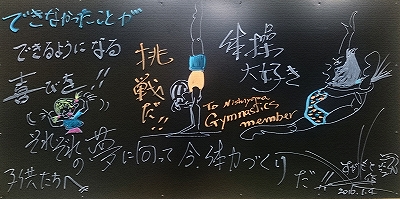 できなかったことが
できるようになる
喜びを!!
挑
戦
だ!!
体操
大好き
To Nishiyama
Gymnastics
member
それぞれの夢に向って今、体力づくり
だ!!
子供たちへ